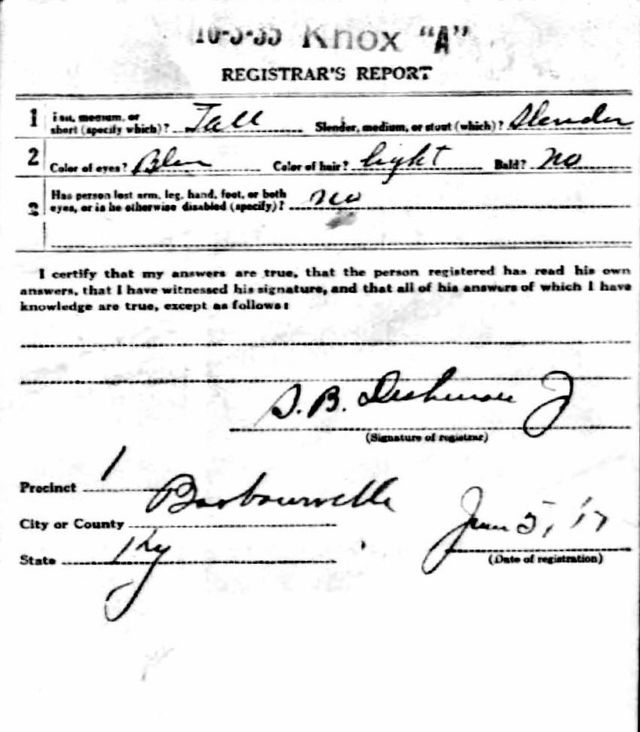 16-3-35 Knox "A"
REGISTRAR'S REPORT
1 Tall, medium, or short (specify which)? Tall Slender, medium, or stout (which)? Slender
2 Color of eyes? Blue Color of hair? light Bald? No
3 Has person lost arm, leg, hand, foot, or both eyes, or is he otherwise disabled (specify)? no
I certify that my answers are true, that the person registered has read his own
answers, that I have witnessed his signature, and that all of his answers of which I have
knowledge are true, except as follows:
S. B.
(Signature of registrar)
Precinct 1
City or County Barbourville
State Ky
June 5, '17
(Date of registration)